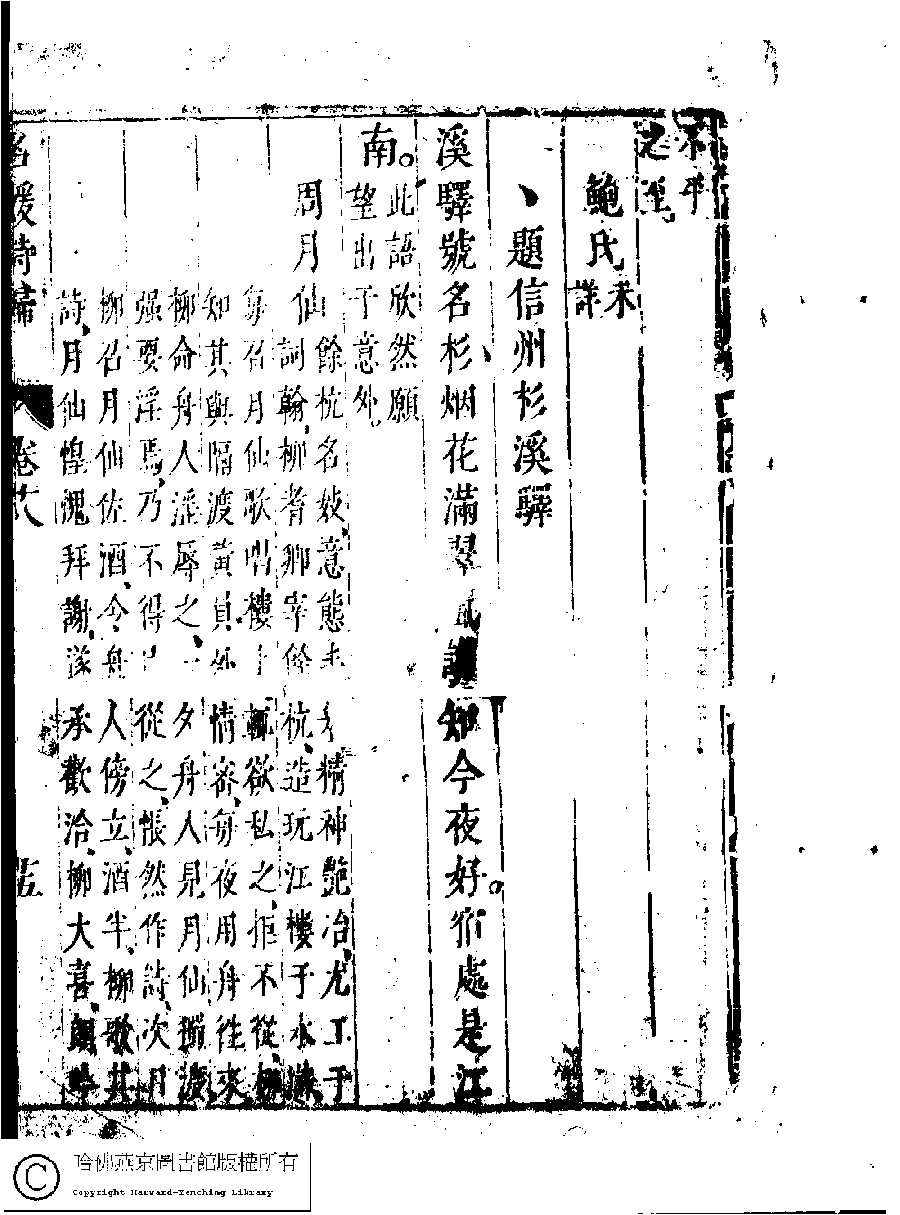 不平
之至
鮑氏未
詳
題信州杉溪驛
溪驛號名杉烟花滿翠 知今夜好宿處是江
南
此語欣然願
望出于意外
周月仙
餘杭名妓意態 精神艷冶尤工于
詞翰柳耆卿宰餘杭造玩江樓于水滸
每召月仙歌唱樓上輒欲私之拒不從柳
知其與隔渡黃員外情密每夜用舟往來
柳命舟人淫辱之一夕舟人見月仙獨渡
强要淫焉乃不得已從之悵然作詩次日
柳召月仙佐酒令舟人傍立酒半柳歌其
詩月仙惶愧拜謝遂承歡洽柳大喜
名媛詩歸 卷廿八
哈佛燕京圖書館版權所有
Copyright Harvard-Yenching Library